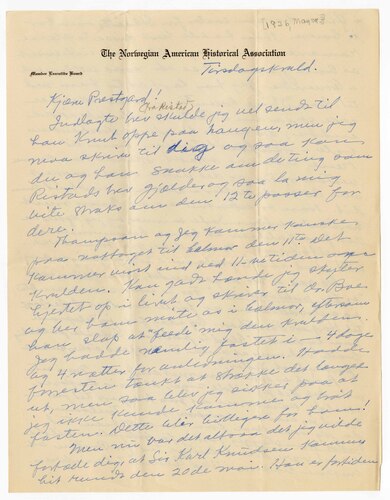 [1926, May 18?]
The Norwegian American Historical Association
Member Executive Board
Tirsdagskvæld.
Kjære Prestgard!
Indlagte brev skulde jeg vel sendt til
han Knut oppe paa haugen, men jeg
maa skrive til dig og saa kan
du og han snakke om de ting som
Ristads brev gjælder og saa la mig
vite straks om den 12te passer for
dere.
Thompson og jeg kommer kanske
paa nattoget til Calmar den 11te. Det
kommer vist ind ved 11-tiden om
kvælden. Kan godt hænde jeg skyter
hjertet op i livet og skriver til Dr. Boe
og ber ham møte os i Calmar, eftersom
han slap at "feede" mig den kvælden.
Jeg hadde nemlig fastet i 4 dage
og 4 nætter for anledningen. Hadde
tænkt at strække det længer
ut, men saa blev jeg sikker paa at
jeg ikke kunde komme og brøt
fasten. Dette blev billigere for ham!
Men nu var det altsaa det jeg vilde
fortælle dig, at Sir Karl Knudsen kommer
hit rundt den 20de mai. Han er fortiden